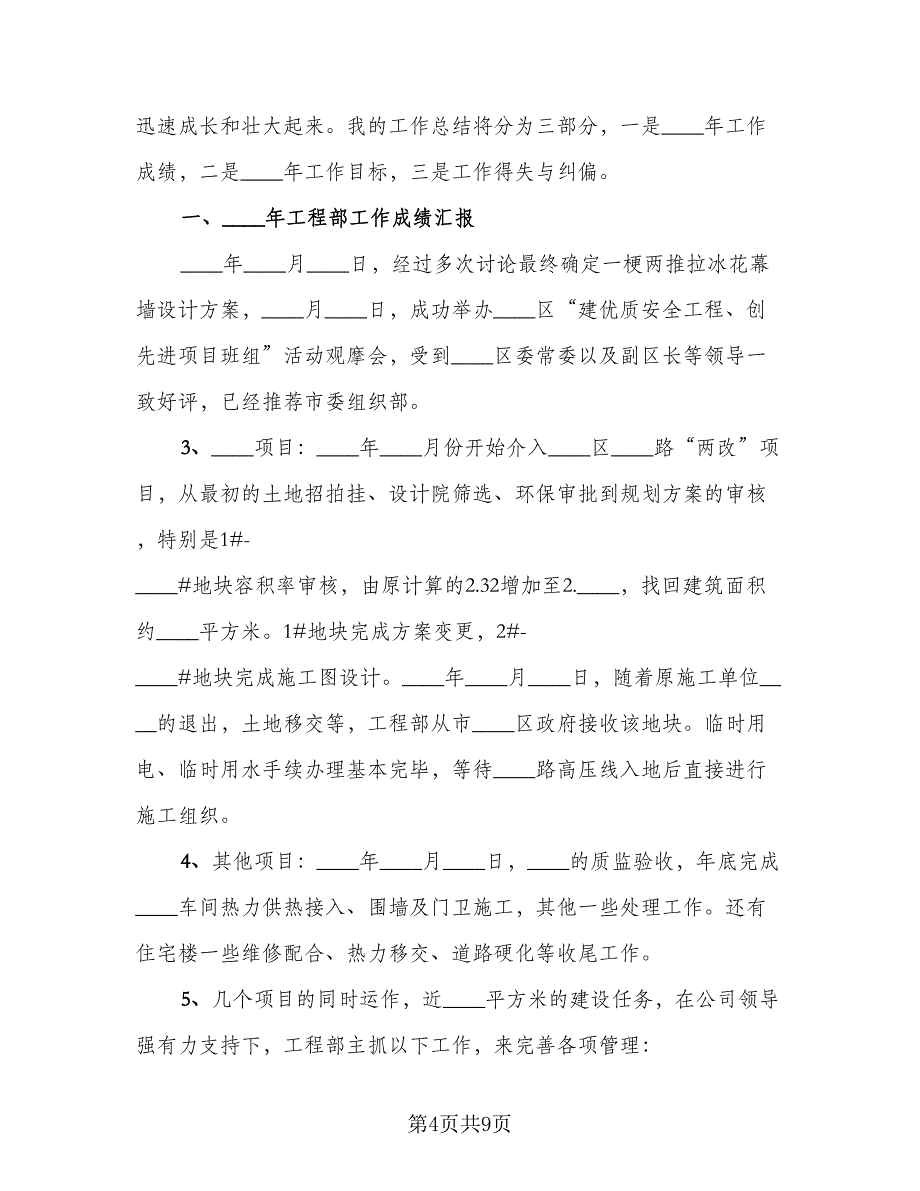 迅速成长和壮大起来。我的工作总结将分为三部分，一是____年工作
成绩，二是____年工作目标，三是工作得失与纠偏。
一、____年工程部工作成绩汇报
____年____月____日，经过多次讨论最终确定一梗两推拉冰花幕
墙设计方案，____月____日，成功举办____区“建优质安全工程、创
先进项目班组”活动观摩会，受到____区委常委以及副区长等领导一
致好评，已经推荐市委组织部。
3、____项目：____年____月份开始介入____区____路“两改”项
目，从最初的土地招拍挂、设计院筛选、环保审批到规划方案的审核
，特别是1#-
____#地块容积率审核，由原计算的2.32增加至2.____，找回建筑面积
约____平方米。1#地块完成方案变更，2#-
____#地块完成施工图设计。____年____月____日，随着原施工单位__
__的退出，土地移交等，工程部从市____区政府接收该地块。临时用
电、临时用水手续办理基本完毕，等待____路高压线入地后直接进行
施工组织。
4、其他项目：____年____月____日，____的质监验收，年底完成
____车间热力供热接入、围墙及门卫施工，其他一些处理工作。还有
住宅楼一些维修配合、热力移交、道路硬化等收尾工作。
5、几个项目的同时运作，近____平方米的建设任务，在公司领导
强有力支持下，工程部主抓以下工作，来完善各项管理：
第4页共9页